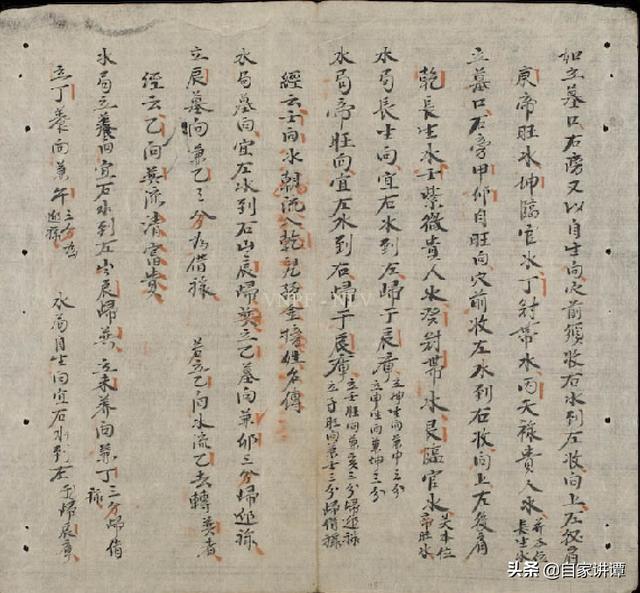 如立墓口右旁又以自生向穴前須收右水到左收向上左
庚帝旺水坤臨官水丁冠帶水丙天祿貴人水
立墓口右旁甲卯自旺向穴前收左水到右收向上左
乾長生水壬紫微貴人水癸冠帶水艮臨官水
水局長生向宜右水到左歸丁辰庫
立坤生向兼申三分
立申生向兼坤三分
水局帝旺向宜左水到右歸于辰庫
立壬旺向兼亥三分歸進祿
立子旺向兼壬三分歸借祿
經云壬向水朝流入乾兒孫金榜姓名傳
水局墓向宜左水到右出辰歸英立乙墓向兼卯三分歸進祿
立辰墓向兼乙三分為借祿
若立乙向水流乙去轉英者
經云乙向英流清富貴
水局立養向宜右水到左出辰歸英立未養向兼丁三分歸借祿
立丁養向兼午三分為進祿
水局自生向宜右水到左于歸辰庫
VNPF - NLV
头条 @自家讲谭